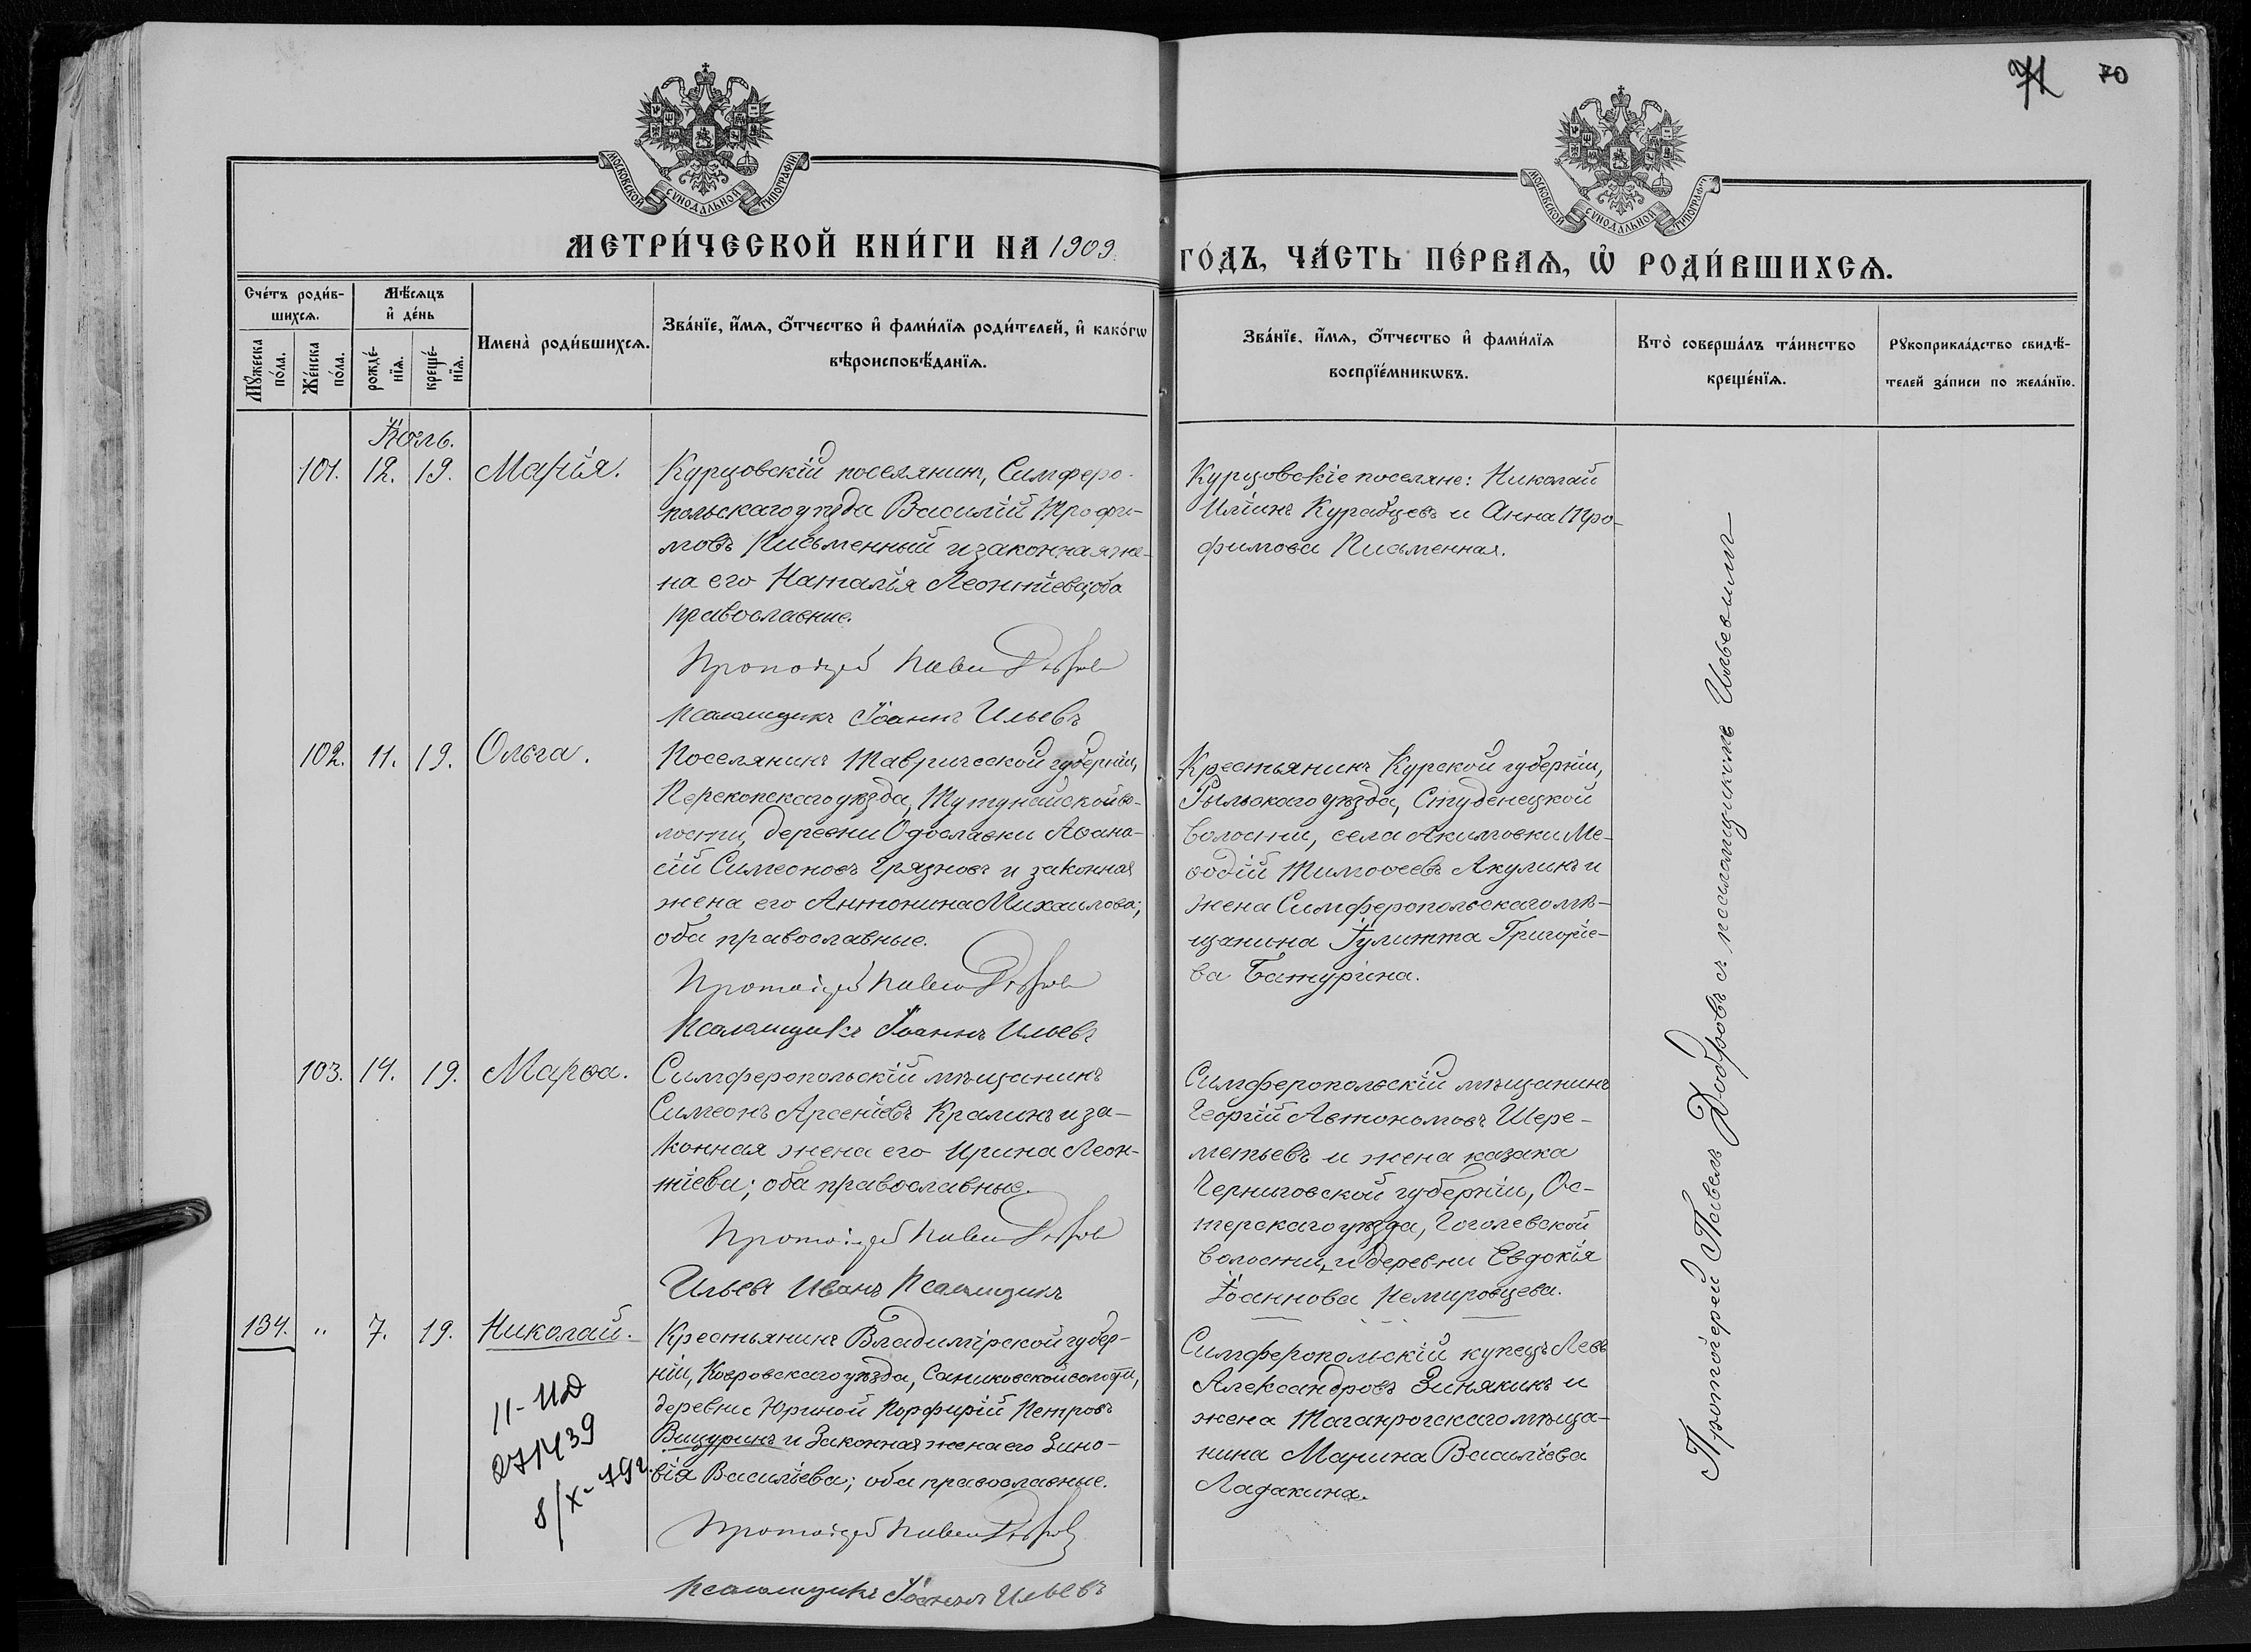 71 70
МОСКОВСКОЙ СѴНОДАЛЬНОЙ ТИПОГРАФІИ
МОСКОВСКОЙ СѴНОДАЛЬНОЙ ТИПОГРАФІИ
МЕТРИ́ЧЕСКОЙ КНИ́ГИ НА 1909 ГО́ДЪ, ЧА́СТЬ ПЕ́РВАѦ, Ѡ҆ РОДИ́ВШИХСѦ.
Сче́тъ роди́в-
шихсѧ.
Мꙋ́жеска по́ла.
Же́нска по́ла.
Мѣ́сѧцъ
и҆ де́нь
рожде́-
нїѧ.
креще́-
нїѧ.
И҆мена̀ роди́вшихсѧ.
Зва́нїе, и҆́мѧ, ѻ҆́тчество и҆ фами́лїѧ роди́телей, и҆ како́гѡ
вѣроисповѣ́данїѧ.
Зва́нїе, и҆́мѧ, ѻ҆́тчество и҆ фами́лїѧ
воспрїе́мникѡвъ.
Кто̀ соверша́лъ та́инство
креще́нїѧ.
Рꙋкоприкла́дство свидѣ́-
телей за́писи по жела́нїю.
Іюль.
101. 12. 19. Марія.
Курцовскій поселянинъ, Симферо-
польскаго уѣзда Василій Трофи-
мовъ Письменный и законная же-
на его Наталія Леонтіева; оба
православные.
Протоіерей Павелъ Добровъ
Псаломщикъ Іоаннъ Ильевъ
Курцовскіе поселяне: Николай
Ильинъ Курабцевъ и Анна Тро-
фимова Письменная.
102. 11. 19. Ольга.
Поселянинъ Таврической губерніи,
Перекопскаго уѣзда, Тутунайской во-
лости, деревни Богославки Аѳана-
сій Симеоновъ Грязновъ и законная
жена его Антонина Михаилова;
оба православные.
Протоіерей Павелъ Добровъ
Псаломщикъ Іоаннъ Ильевъ
Крестьянинъ Курской губерніи,
Рыльскаго уѣзда, Студенецкой
волости, села Акимовки Ме-
ѳодій Тимоѳеевъ Акулинъ и
жена Симферопольскаго мѣ-
щанина Іулитта Григоріе-
ва Батурина.
103. 14. 19. Марѳа.
Симферопольскій мѣщанинъ
Симеонъ Арсеніевъ Кралинъ и за-
конная жена его Ирина Леон-
тіева; оба православные.
Протоіерей Павелъ Добровъ
Ильевъ Иванъ Псаломщикъ
Симферопольскій мѣщанинъ
Георгій Автономовъ Шере-
метьевъ и жена казака
Черниговской губерніи, Ос-
терскаго уѣзда, Гоголевской
волости, и деревни Евдокія
Іоаннова Немировцева.
134. " 7. 19. Николай.
Крестьянинъ Владимірской губер-
ніи, Ковровскаго уѣзда, Саниковской волости,
деревни Юриной Порфирій Петровъ
Вицуринъ и законная жена его Зино-
вія Василіева; оба православные.
Протоіерей Павелъ Добровъ
Псаломщикъ Іоаннъ Ильевъ
Симферопольскій купецъ Левъ
Александровъ Зинякинъ и
жена Таганрогскаго мѣща-
нина Марина Василіева
Ладакина.
8/X-79г.
Протоіерей Павелъ Добровъ съ псаломщикомъ Ильевымъ